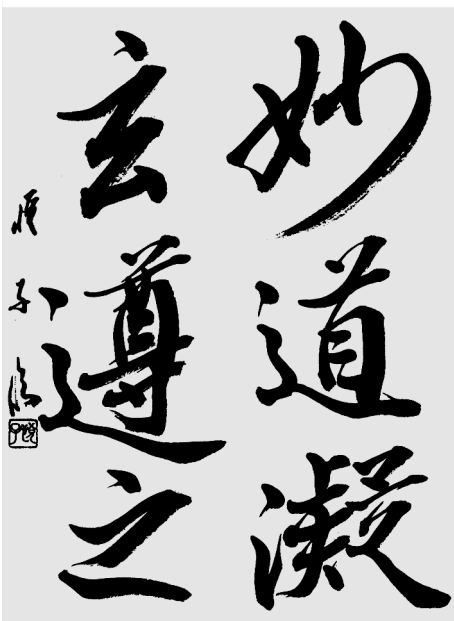 妙道凝
玄遵之